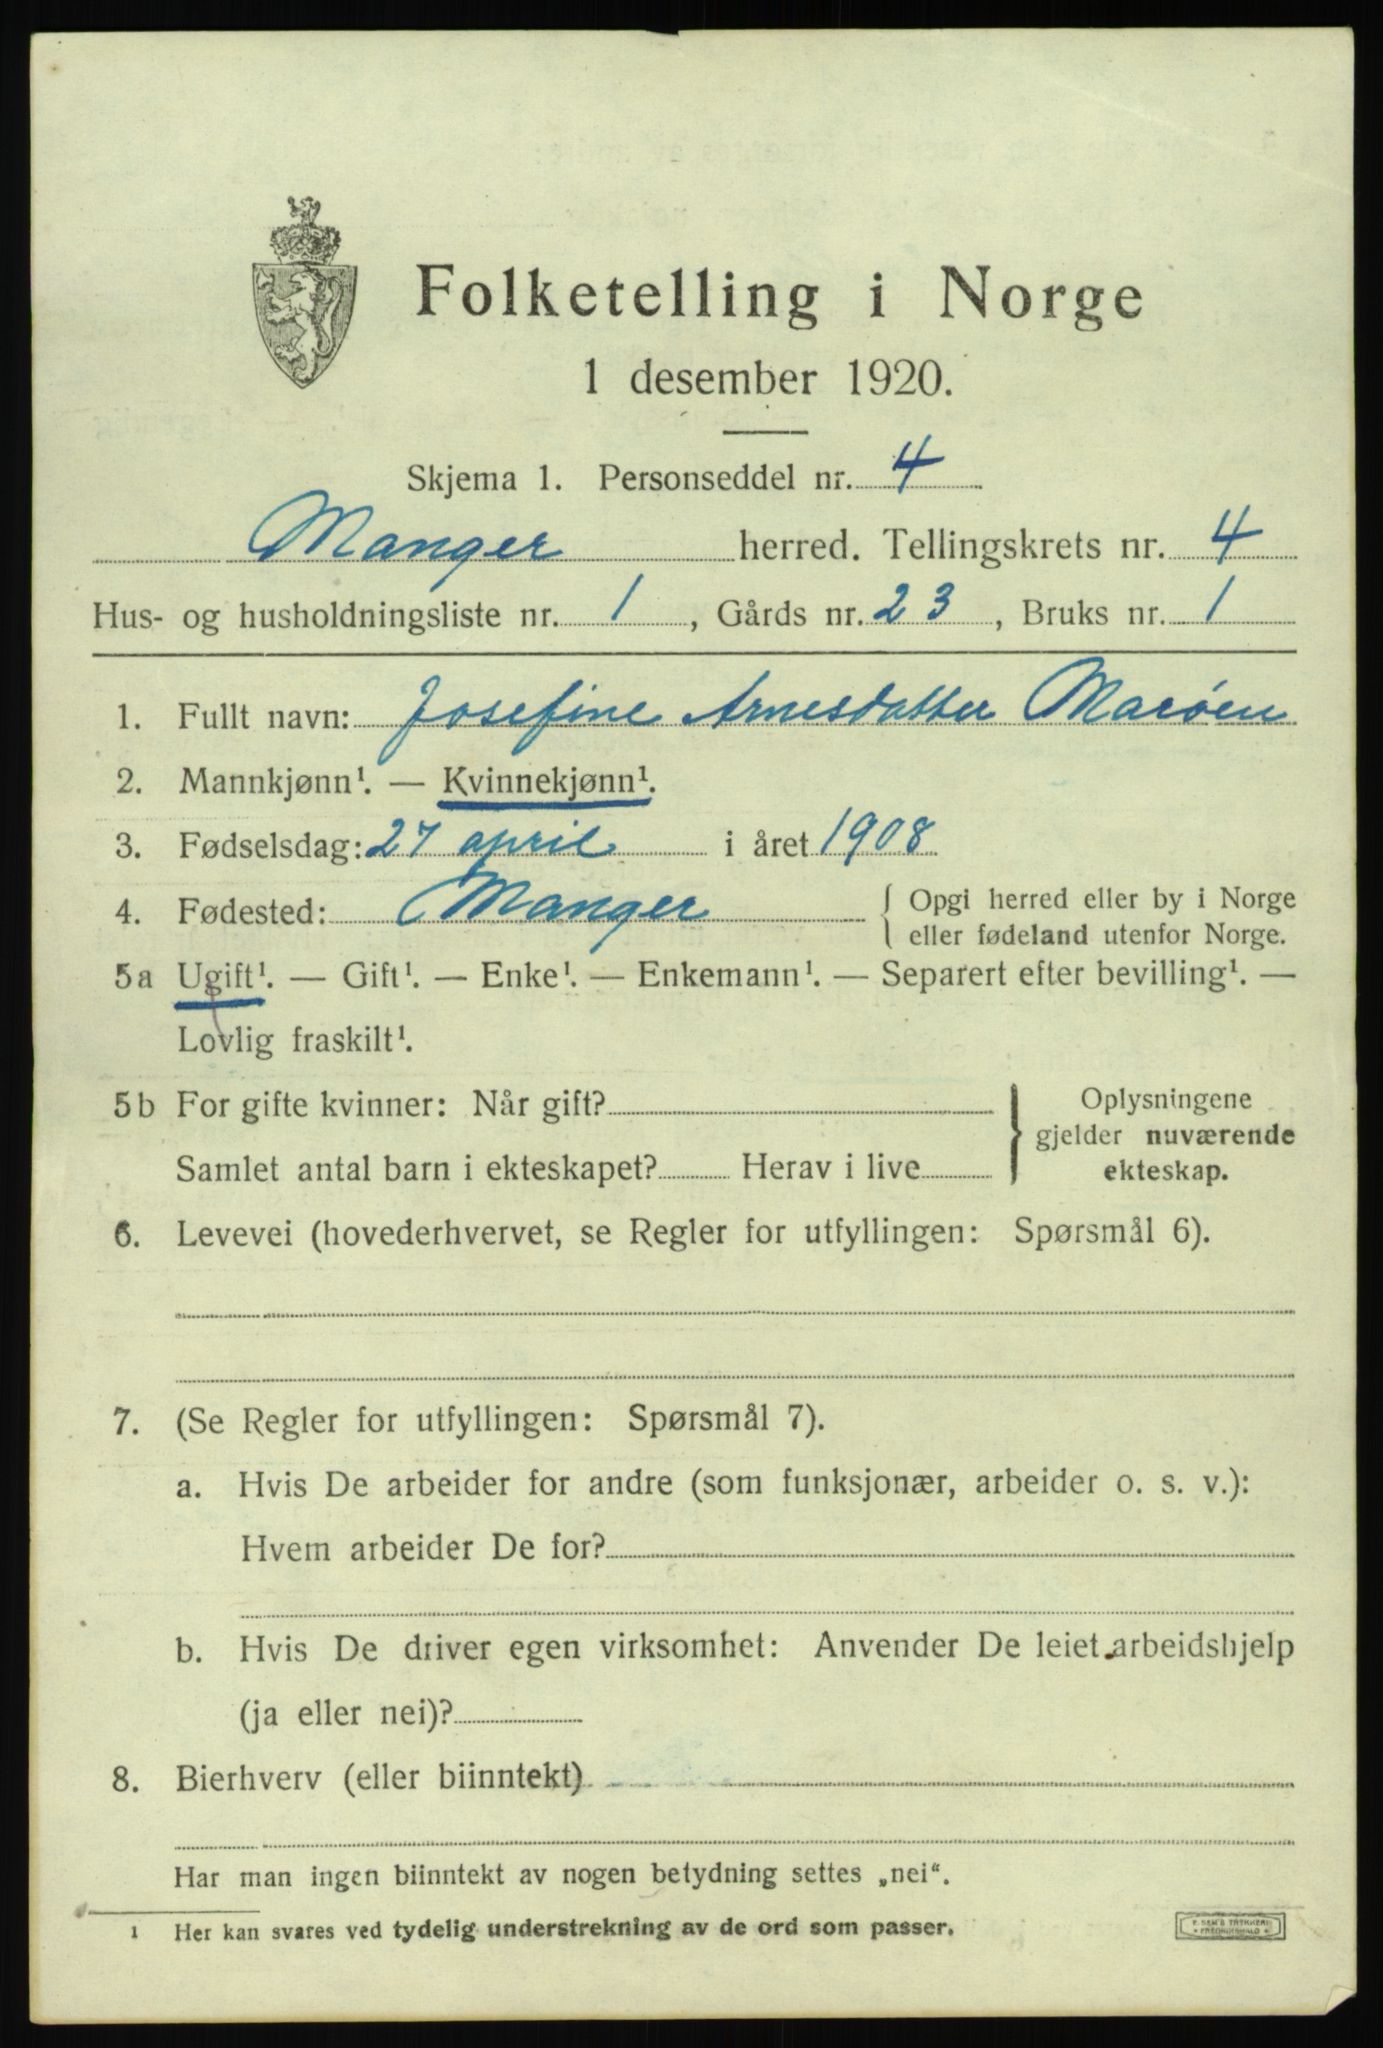 Folketelling i Norge
1 desember 1920.
Skjema 1. Personseddel nr. 4
Manger herred. Tellingskrets nr. 4
Hus- og husholdningsliste nr. 1, Gårds nr. 23, Bruks nr. 1
1. Fullt navn: Josefine Arnesdatter Marøen
2. Mannkjønn¹. — Kvinnekjønn¹.
3. Fødselsdag: 27 april i året 1908
4. Fødested: Manger { Opgi herred eller by i Norge
eller fødeland utenfor Norge.
5a Ugift¹. — Gift¹. — Enke¹. — Enkemann¹. — Separert efter bevilling¹. —
Lovlig fraskilt¹.
5b For gifte kvinner: Når gift? } Oplysningene
gjelder nuværende
Samlet antal barn i ekteskapet? Herav i live
ekteskap.
6. Levevei (hovederhvervet, se Regler for utfyllingen: Spørsmål 6).
7. (Se Regler for utfyllingen: Spørsmål 7).
a. Hvis De arbeider for andre (som funksjonær, arbeider o. s. v.):
Hvem arbeider De for?
b. Hvis De driver egen virksomhet: Anvender De leiet arbeidshjelp
(ja eller nei)?
8. Bierhverv (eller biinntekt)
Har man ingen biinntekt av nogen betydning settes „nei“.
1 Her kan svares ved tydelig understrekning av de ord som passer.